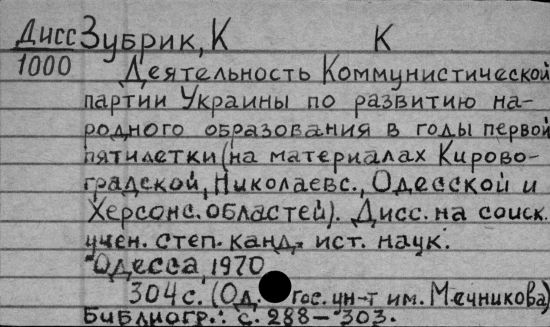 Дисс Зубрик, К К
1000
Деятельность Коммунистической
партии Украины по развитию на-
родного образования в годы первой
пятилетки (на материалах Кирово-
градской, Николаевс., Одесской и
Херсонс. областей). Дисс. на соиск.
учен. степ. канд. ист. наук.
Одесса, 1970
304 с. (Од. гос. ун-т им. Мечникова)
Библиогр.: с. 288-303.